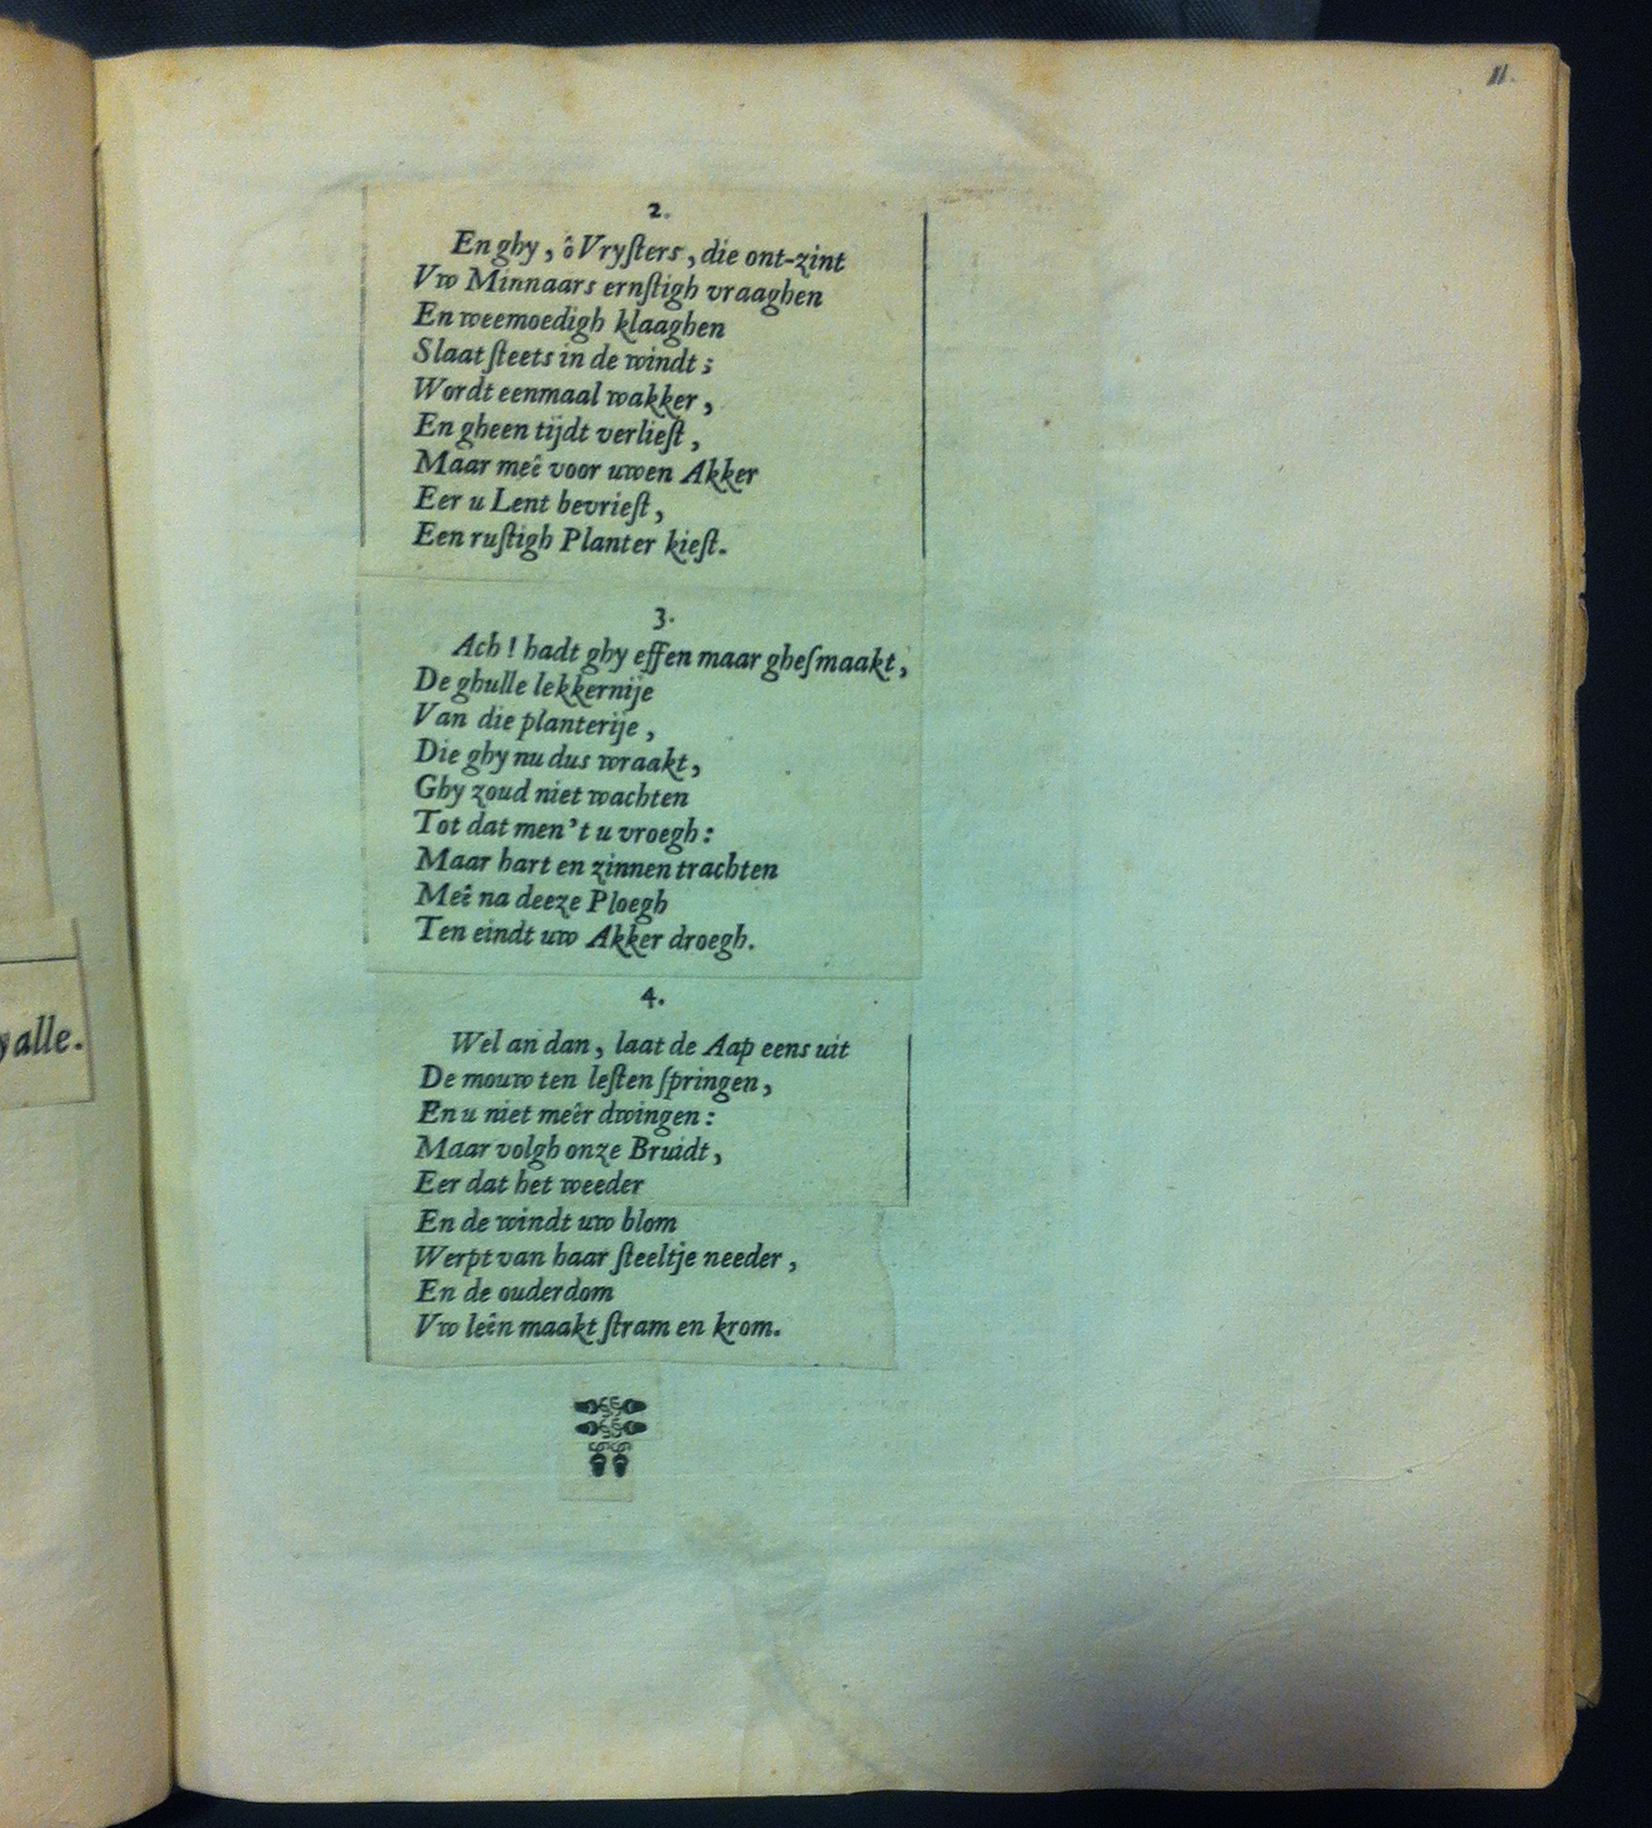 11.
2.
En ghy, ô Vryſters, die ont-zint
Vw Minnaars ernſtigh vraaghen
En weemoedigh klaaghen
Slaat ſteets in de windt;
Wordt eenmaal wakker,
En gheen tijdt verlieſt,
Maar meê voor uwen Akker
Eer u Lent bevrieſt,
Een ruſtigh Planter kieſt.
3.
Ach! hadt ghy effen maar gheſmaakt,
De ghulle lekkernije
Van die planterije,
Die ghy nu dus wraakt,
Ghy zoud niet wachten
Tot dat men't u vroegh:
Maar hart en zinnen trachten
Meê na deeze Ploegh
Ten eindt uw Akker droegh.
4.
Wel an dan, laat de Aap eens uit
De mouw ten leſten ſpringen,
En u niet meêr dwingen:
Maar volgh onze Bruidt,
Eer dat het weeder
En de windt uw blom
Werpt van haar ſteeltje needer,
En de ouderdom
Vw leên maakt ſtram en krom.
alle.